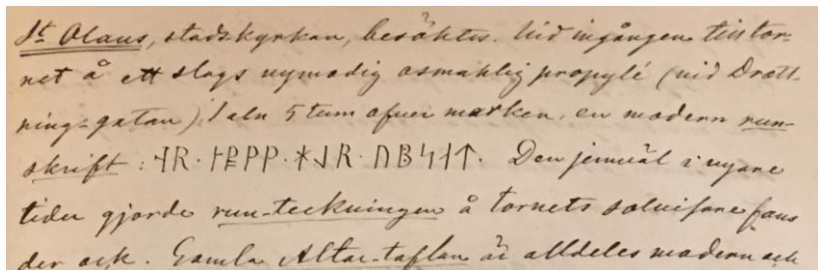 St Olaus, stadskyrkan, besöktes. Vid ingången till tor-
net å ett slags nymodig osmaklig propylé (vid Drott-
ning-gatan) 1 aln 5 tum ofver marken, en modern run-
skrift : ᛆᚱ · ᚠᚠ · ᚼᛆᚱ · ᚢᛒᛋᛆᛏ · Den jemväl i nyare
tider gjorde run-teckningen å tornets solvisare fans
der ock. Gamla Altar-taflan är alldeles modern och